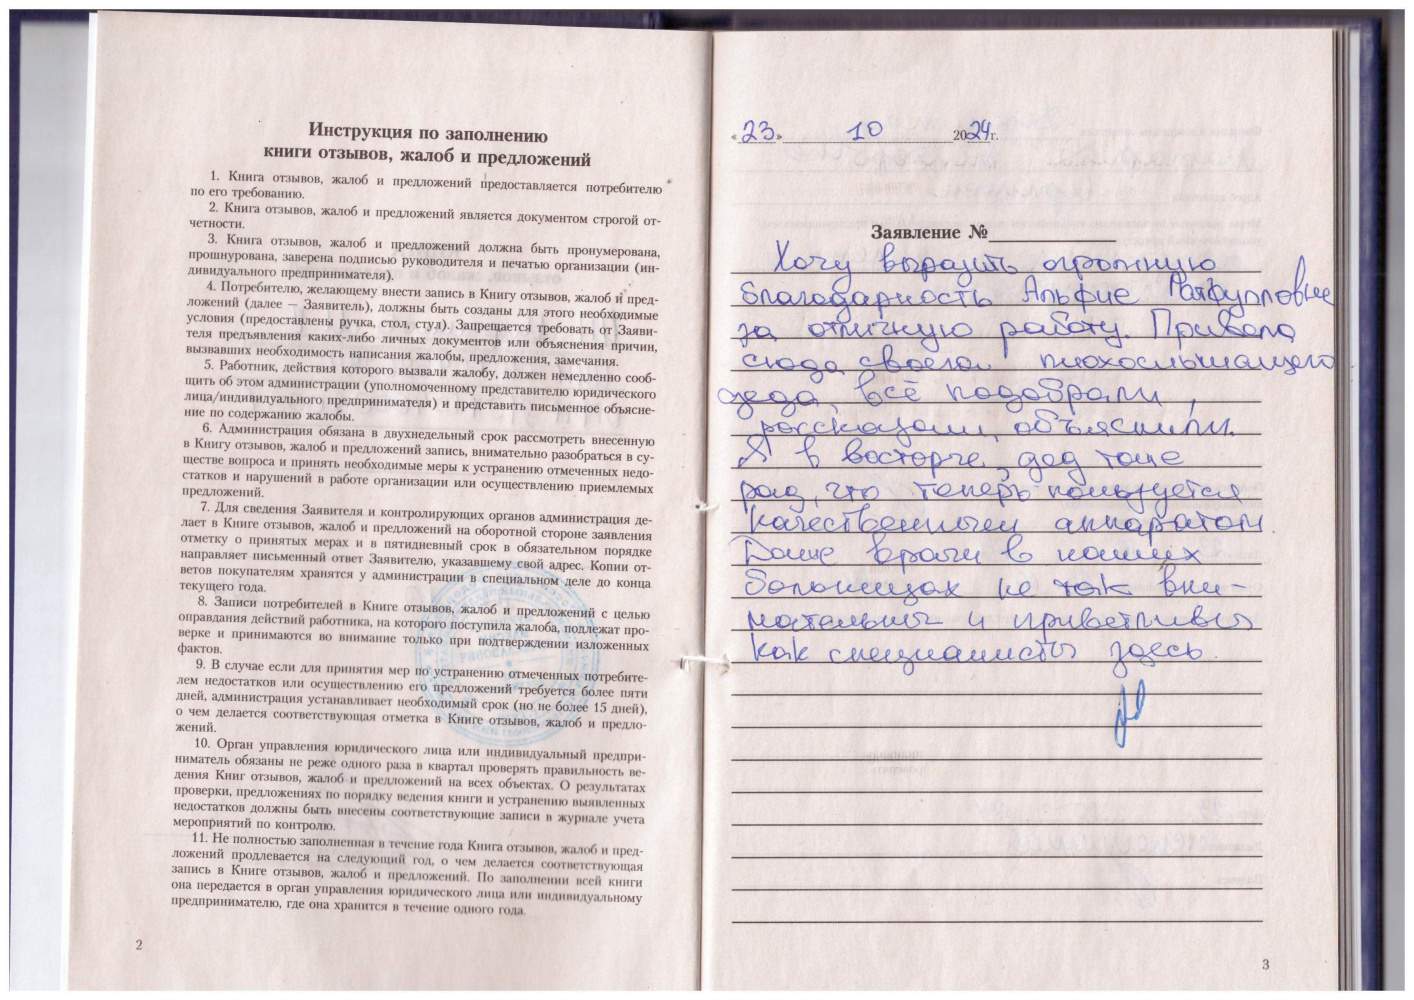 Инструкция по заполнению
книги отзывов, жалоб и предложений
1. Книга отзывов, жалоб и предложений предоставляется потребителю
по его требованию.
2. Книга отзывов, жалоб и предложений является документом строгой от-
четности.
3. Книга отзывов, жалоб и предложений должна быть пронумерована,
прошнурована, заверена подписью руководителя и печатью организации (ин-
дивидуального предпринимателя).
4. Потребителю, желающему внести запись в Книгу отзывов, жалоб и пред-
ложений (далее — Заявитель), должны быть созданы для этого необходимые
условия (предоставлены ручка, стол, стул). Запрещается требовать от Заяви-
теля предъявления каких-либо личных документов или объяснения причин,
вызвавших необходимость написания жалобы, предложения, замечания.
5. Работник, действия которого вызвали жалобу, должен немедленно сооб-
щить об этом администрации (уполномоченному представителю юридического
лица/индивидуального предпринимателя) и представить письменное объясне-
ние по содержанию жалобы.
6. Администрация обязана в двухнедельный срок рассмотреть внесенную
в Книгу отзывов, жалоб и предложений запись, внимательно разобраться в су-
ществе вопроса и принять необходимые меры к устранению отмеченных недо-
статков и нарушений в работе организации или осуществлению приемлемых
предложений.
7. Для сведения Заявителя и контролирующих органов администрация де-
лает в Книге отзывов, жалоб и предложений на оборотной стороне заявления
отметку о принятых мерах и в пятидневный срок в обязательном порядке
направляет письменный ответ Заявителю, указавшему свой адрес. Копии от-
ветов покупателям хранятся у администрации в специальном деле до конца
текущего года.
8. Записи потребителей в Книге отзывов, жалоб и предложений с целью
оправдания действий работника, на которого поступила жалоба, подлежат про-
верке и принимаются во внимание только при подтверждении изложенных
фактов.
9. В случае если для принятия мер по устранению отмеченных потребите-
лем недостатков или осуществлению его предложений требуется более пяти
дней, администрация устанавливает необходимый срок (но не более 15 дней),
о чем делается соответствующая отметка в Книге отзывов, жалоб и предло-
жений.
10. Орган управления юридического лица или индивидуальный предпри-
ниматель обязаны не реже одного раза в квартал проверять правильность ве-
дения Книг отзывов, жалоб и предложений на всех объектах. О результатах
проверки, предложениях по порядку ведения книги и устранению выявленных
недостатков должны быть внесены соответствующие записи в журнале учета
мероприятий по контролю.
11. Не полностью заполненная в течение года Книга отзывов, жалоб и пред-
ложений продлевается на следующий год, о чем делается соответствующая
запись в Книге отзывов, жалоб и предложений. По заполнении всей книги
она передается в орган управления юридического лица или индивидуальному
предпринимателю, где она хранится в течение одного года.
2
«23» 10 2024г.
Заявление №
Хочу выразить огромную
благодарность Альфие
за отличную работу. Привела
сюда своего плохослышащего
деда, всё подобрали,
рассказали, объяснили.
Я в восторге, дед тоже
рад, что теперь пользуется
качественным аппаратом.
Даже врачи в наших
больницах не так вни-
мательны и приветливы
как специалисты здесь.
3